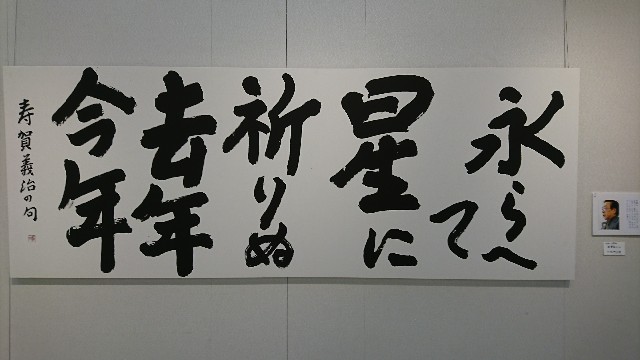 永らへ
て
星に
祈りぬ
去年
今年
寿賀義治の句